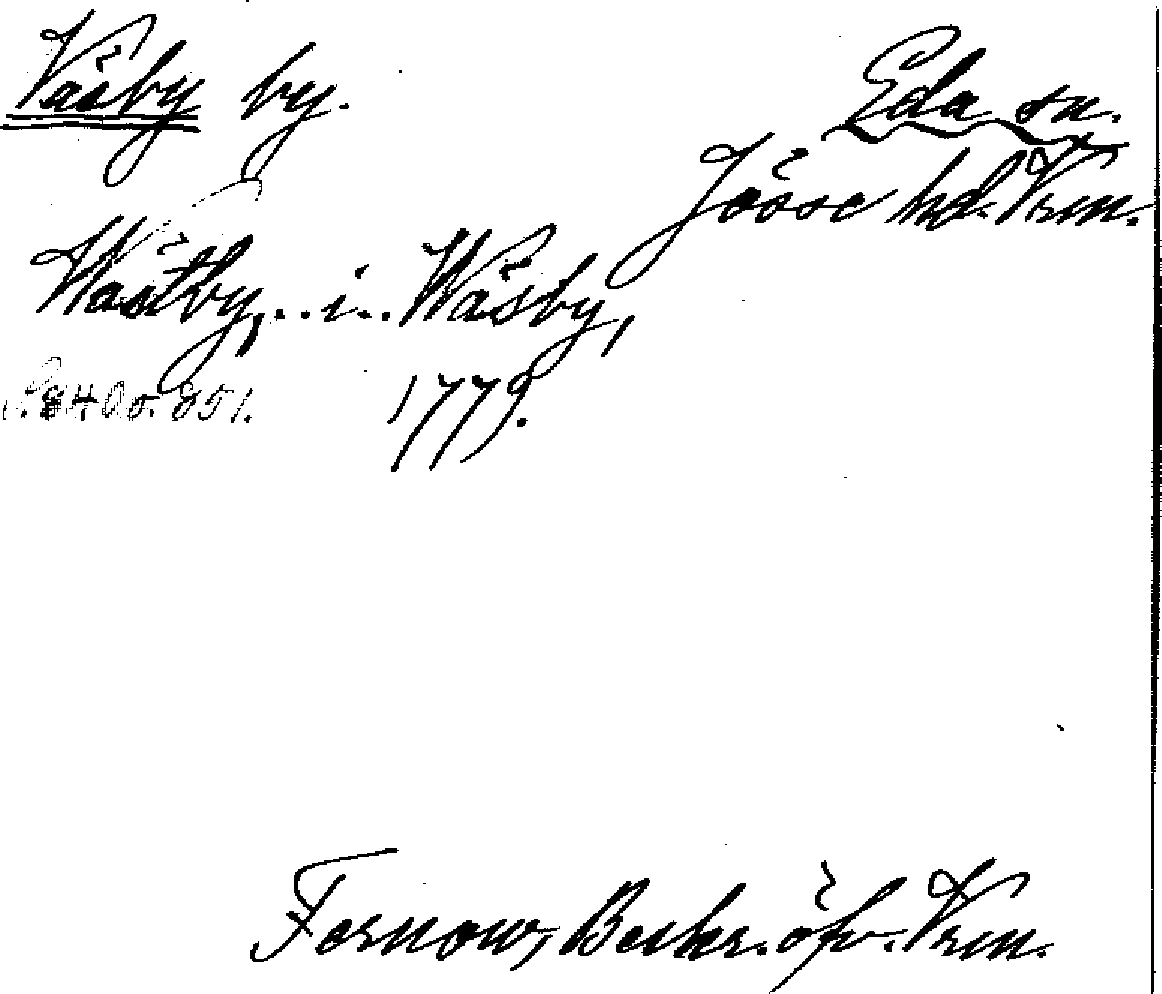 Väsby by. Eda sn.
Jösse hd. Vrm.
Wästby, .. i .. Wäsby,
1779.
Fernow, Beskr. öfv. Vrm.